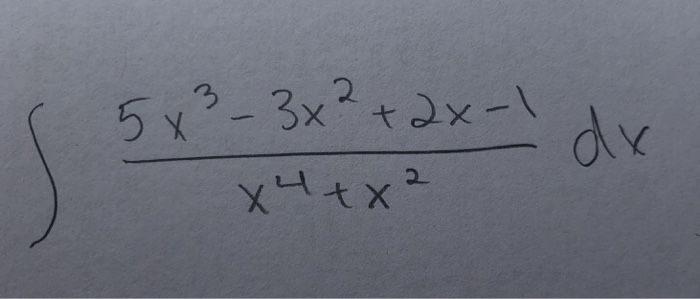 ∫ (5x³ - 3x² + 2x - 1)/(x⁴ + x²) dx